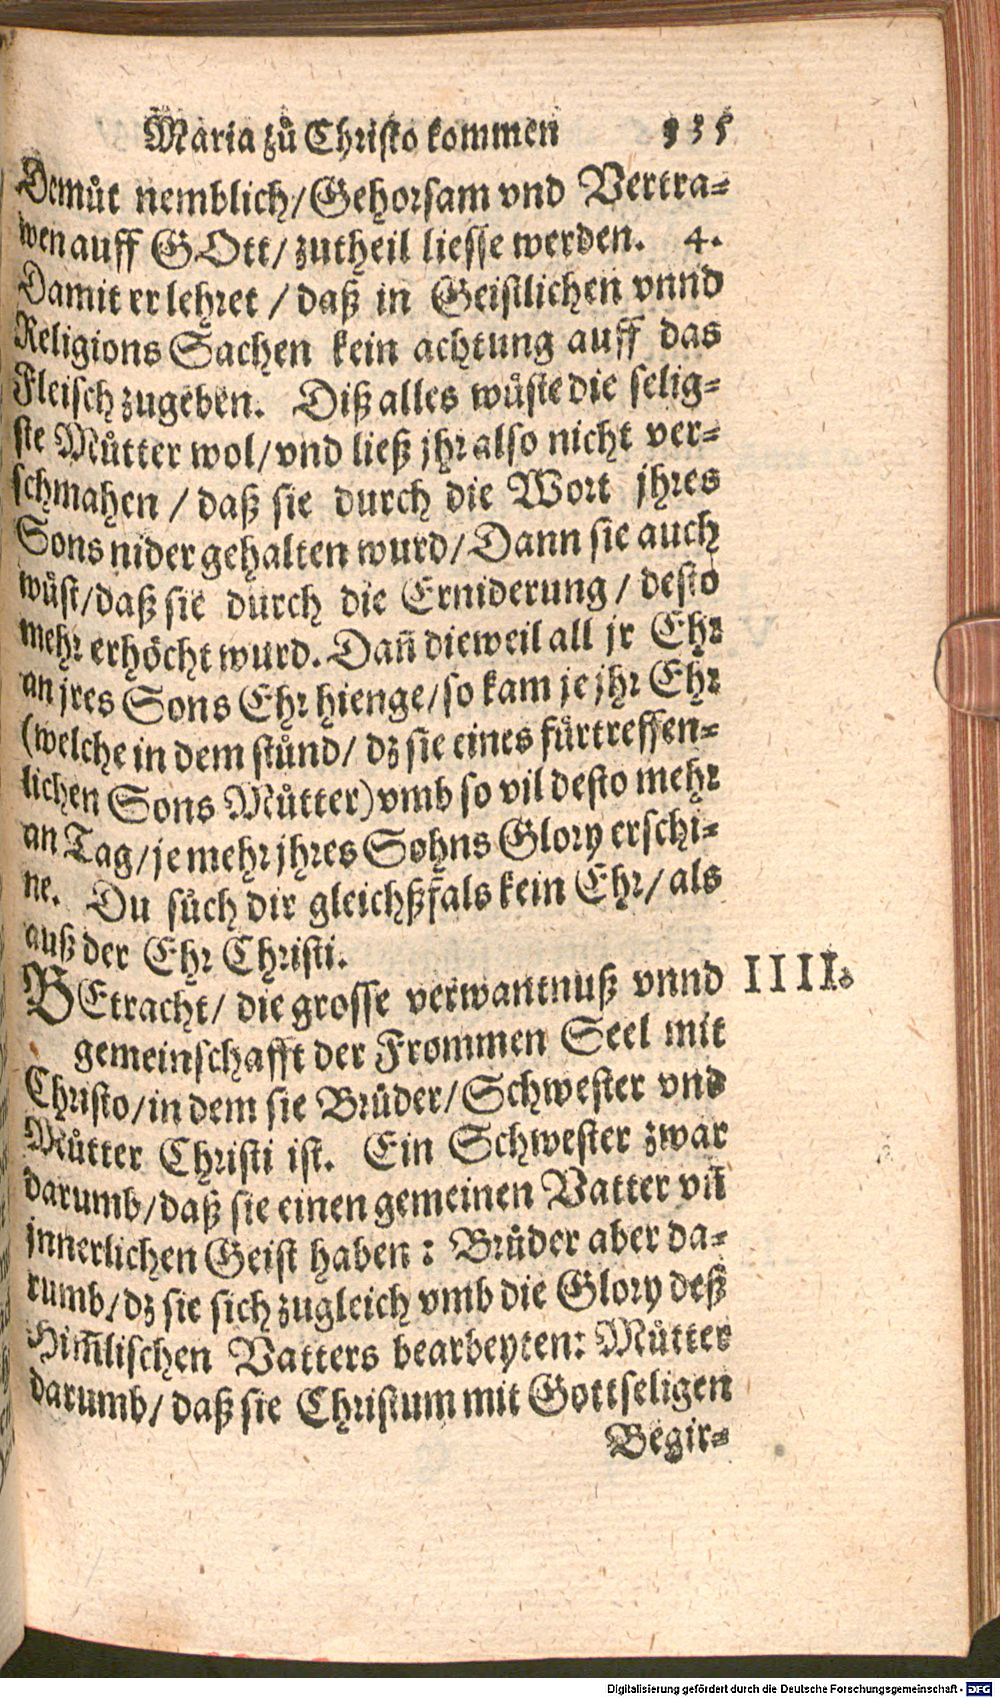 Maria zů Christo kommen 935
Demůt nemblich/Gehorsam vnd Vertra=
wen auff GOtt/ zutheil liesse werden. 4.
Damit er lehret / daß in Geistlichen vnnd
Religions Sachen kein achtung auff das
Fleisch zugeben. Diß alles wůste die selig=
ste Můtter wol/vnd ließ jhr also nicht ver=
schmahen / daß sie durch die Wort jhres
Sons nider gehalten wurd/Dann sie auch
wůst/daß sie durch die Erniderung / desto
mehr erhöcht wurd. Dañ dieweil all jr Ehr
an jres Sons Ehr hienge/so kam je jhr Ehr
(welche in dem stůnd/ dz sie eines fürtreffen=
lichen Sons Můtter) vmb so vil desto mehr
an Tag/je mehr jhres Sohns Glory erschi=
ne. Du sůch dir gleichßfals kein Ehr/ als
auß der Ehr Christi.
BEtracht/ die grosse verwantnuß vnnd IIII.
gemeinschafft der Frommen Seel mit
Christo/in dem sie Brůder/Schwester vnd
Můtter Christi ist. Ein Schwester zwar
darumb/daß sie einen gemeinen Vatter vñ
jnnerlichen Geist haben : Brůder aber da=
rumb/dz sie sich zugleich vmb die Glory deß
Him̃lischen Vatters bearbeyten: Můtter
darumb/ daß sie Christum mit Gottseligen
Begir=
Digitalisierung gefördert durch die Deutsche Forschungsgemeinschaft - DFG